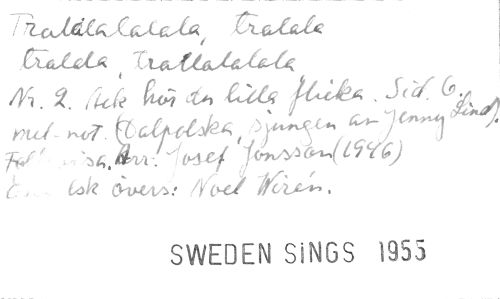 Tralalalalala, tralala
tralala, trallalalala
Nr. 2. Ack hör du lilla flicka. Sid. 6.
mel-not. (Dalpolska, sjungen av Jenny Lind).
Folkvisa. Arr: Josef Jonsson (1946)
övers: Noel Wirén.
SWEDEN SINGS 1955